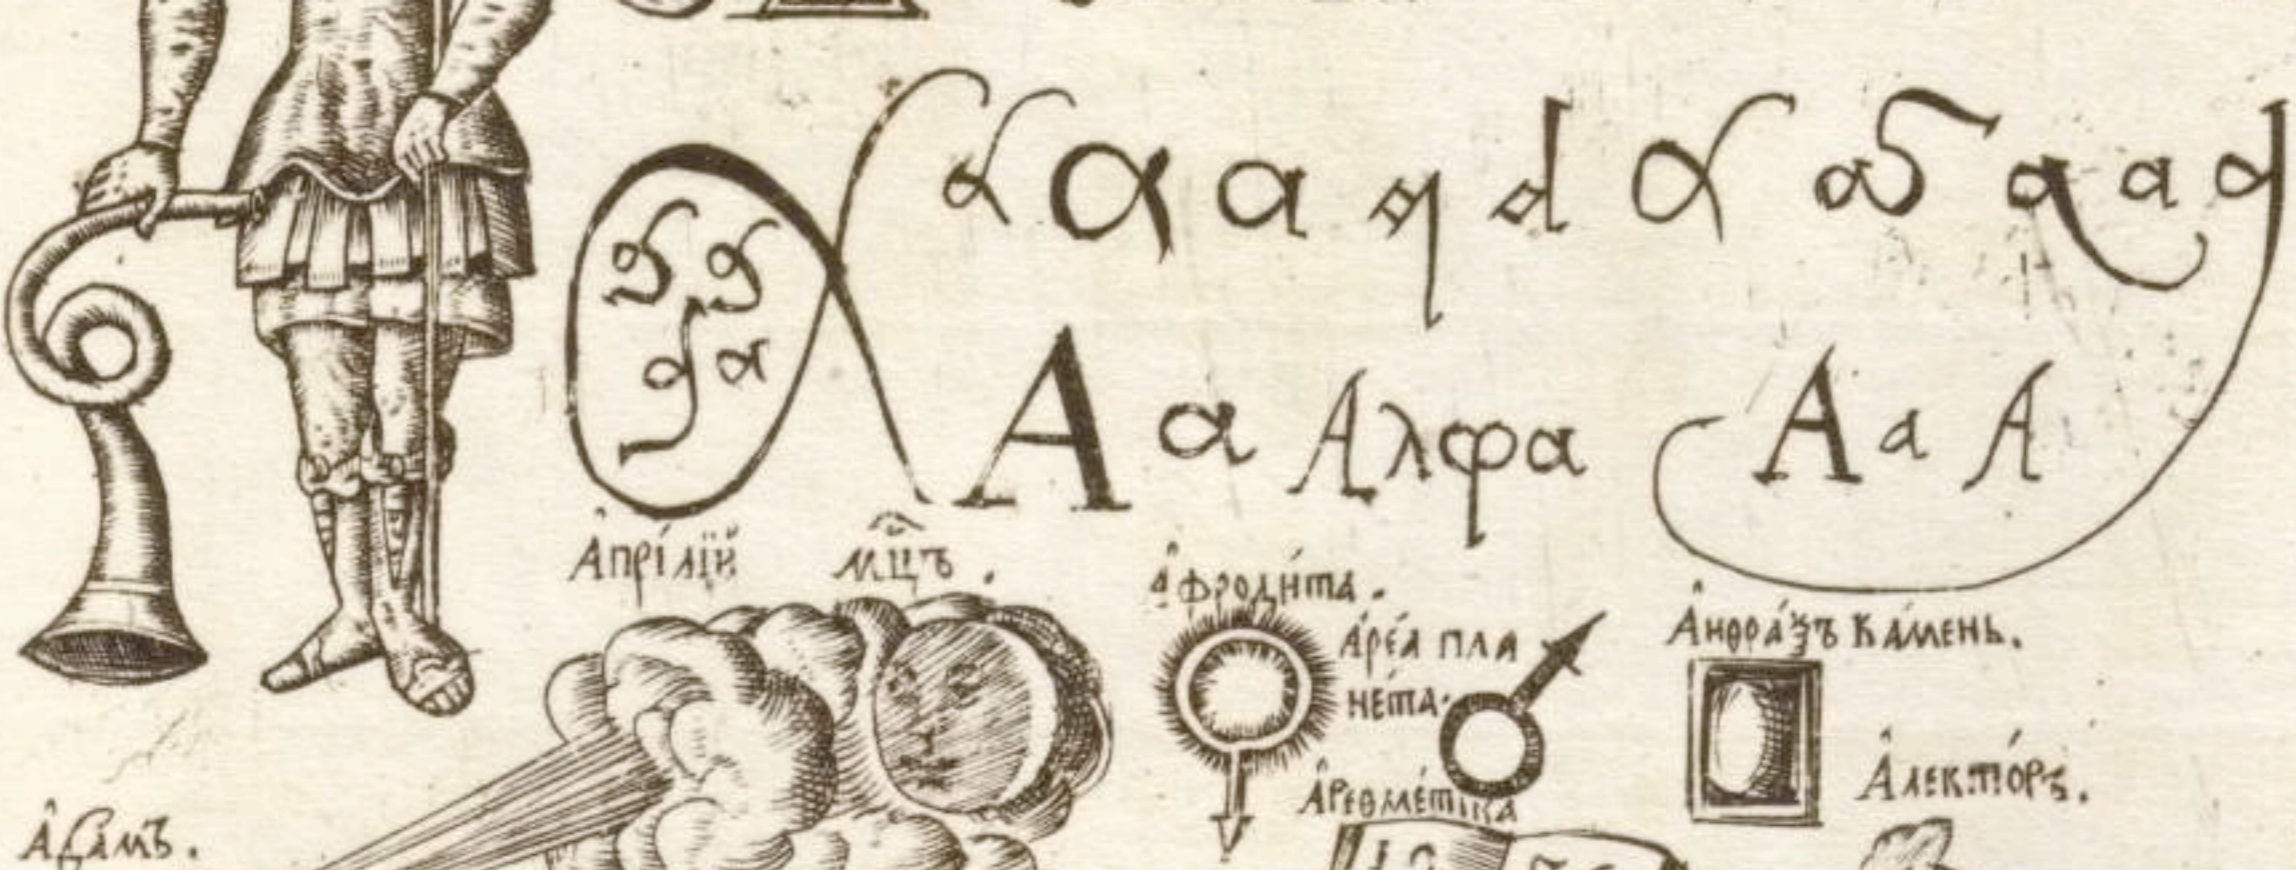 а а а а а а а а а а
а а
а а
А а Алфа А а А
А҆прі́лїй мц҃ъ.
а҆фроди́та.
А҆ре́а пла
не́та.
А҆нѳра́ѯъ ка́мень.
А҆реѳме́тіка
А҆лекто́ръ.
А҆да́мъ.